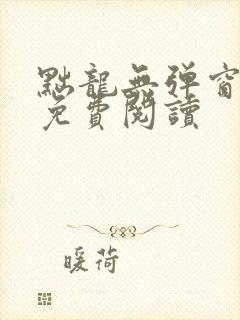 點龍無彈窗
免費閱讀
暖荷